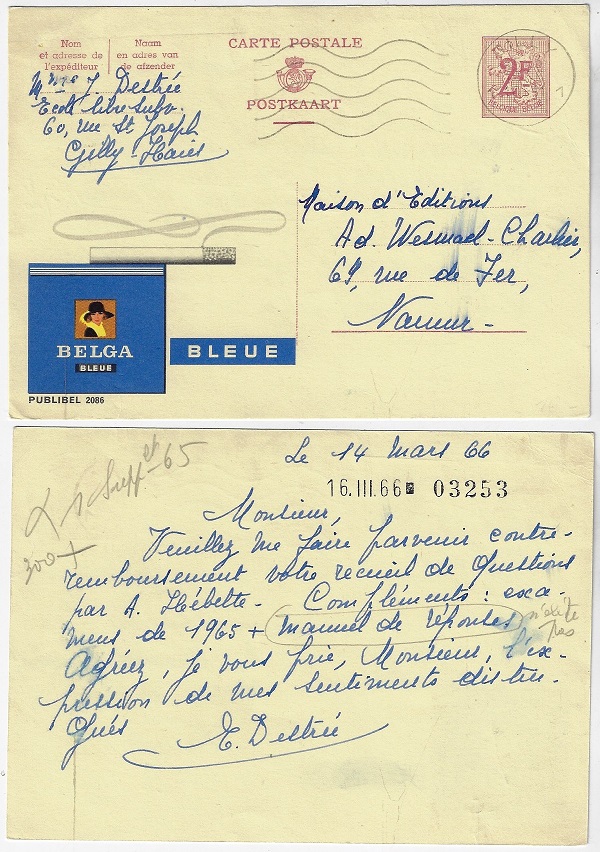 CARTE POSTALE
POSTKAART
Nom
et adresse de
l'expéditeur
Naam
en adres van
de afzender
2F
Destrée
Ecole libre
60, rue St Joseph
Gilly-Haies
Maison d'Editions
Ad. Wesmael-Charlier,
69, rue de Fer,
Namur-
BELGA
BLEUE
BLEUE
PUBLIBEL 2086
Le 14 Mars 66
16.III.66 03253
Monsieur,
Veuillez me faire parvenir contre-
remboursement votre recueil de Questions
par A. Hébette. Compléments: exa-
mens de 1965 + manuel de réponses
n'existe
pas
Agréez, je vous prie, Monsieur, l'ex-
pression de mes sentiments distin-
gués
E. Destrée
65
300